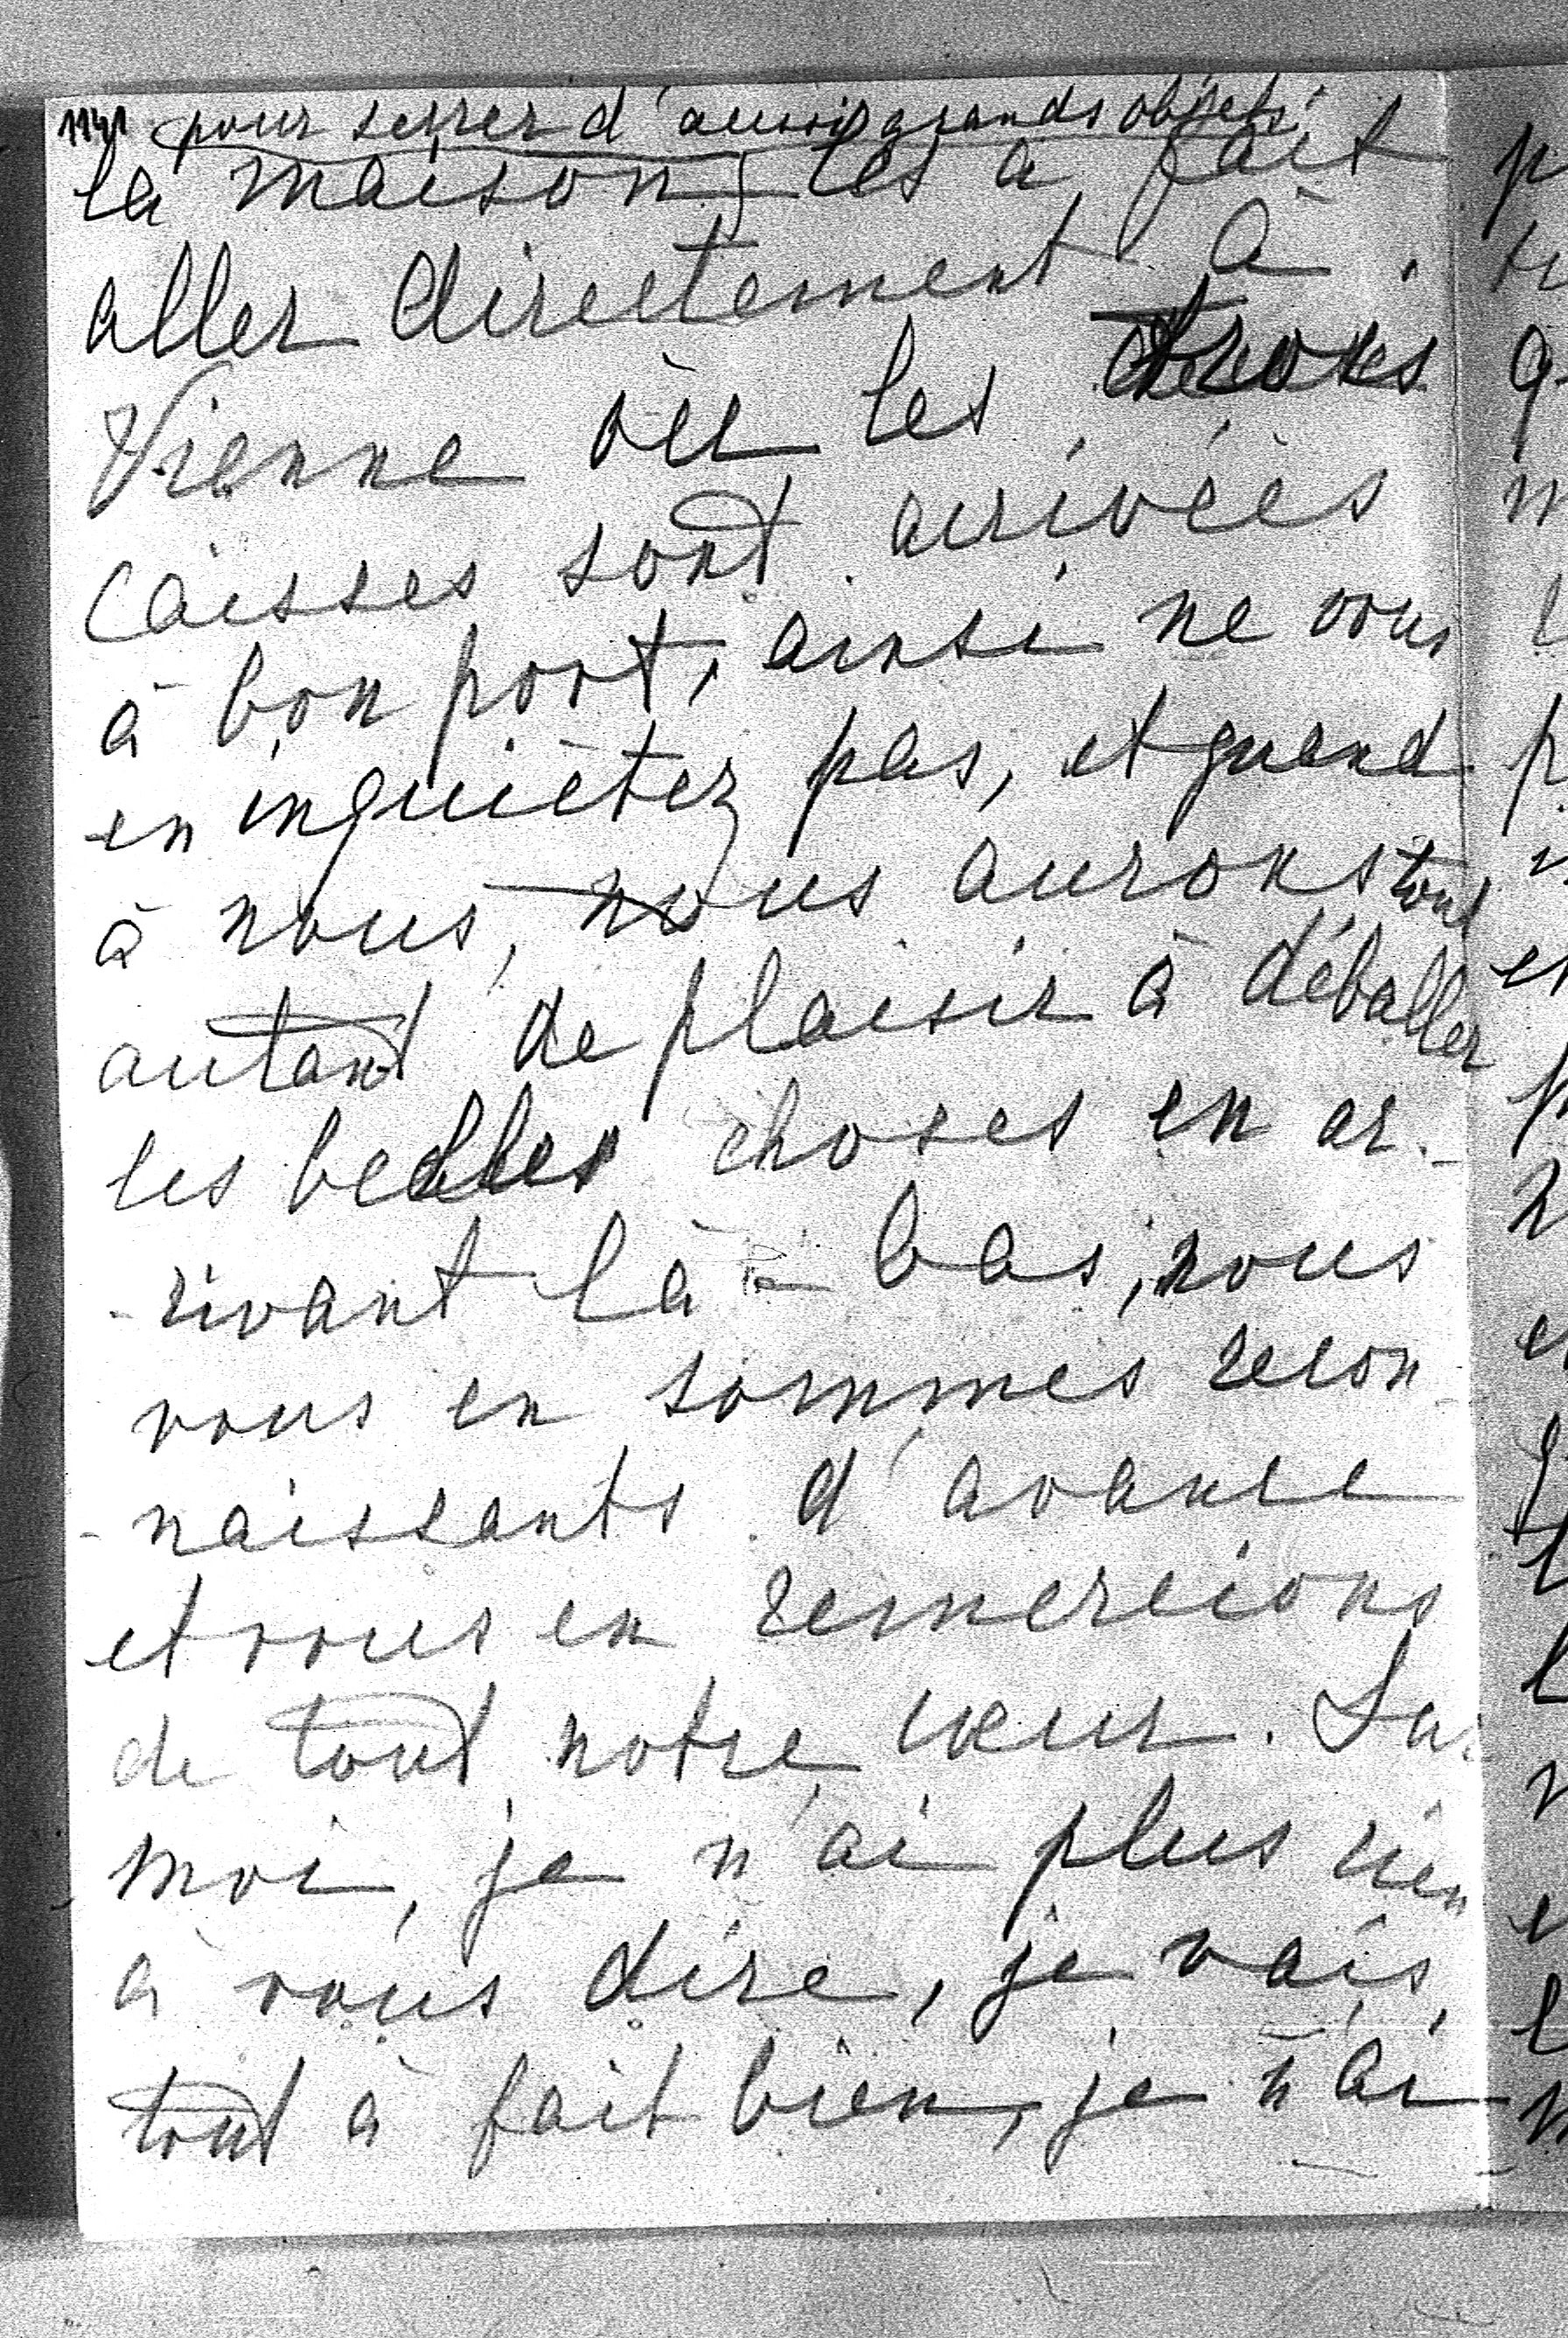 1141 pour serrer d'aussi grands objets
la maison) les a fait
aller directement à
Vienne où les trois
caisses sont arrivées
à bon port, ainsi ne vous
en inquiétez pas, et quand
à nous, nous aurons tout
autant de plaisir à déballer
les belles choses en ar-
-rivant là-bas, nous
vous en sommes recon-
-naissants d'avance
et vous en remercions
de tout notre cœur. Sur
moi, je n'ai plus rien
à vous dire, je vais
tout à fait bien, je n'ai